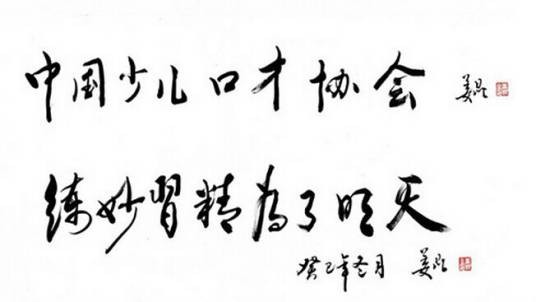 中国少儿口才协会 姜昆
练妙習精为了明天
癸巳年冬月 姜昆